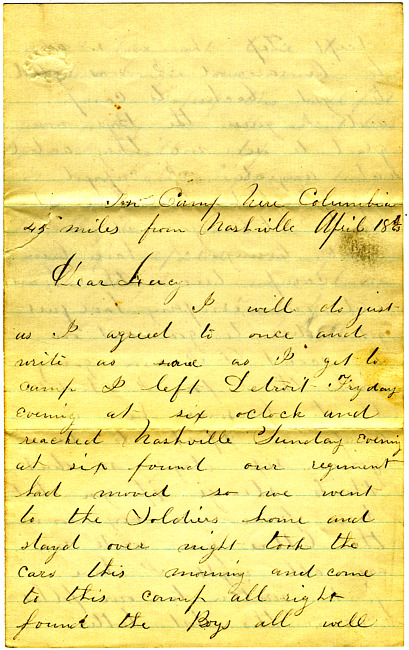 In Camp Nere Columbia
45 miles from Nashville April 18
Dear Lucy
I will do just
as I agreed to once and
write as soone as I get to
camp I left Detroit Fryday
evening at six oclock and
reached Nashville Sunday evening
at six found our regiment
had moved so we went
to the Soldiers home and
stayd over night took the
cars this morning and come
to this camp all right
found the Boys all well